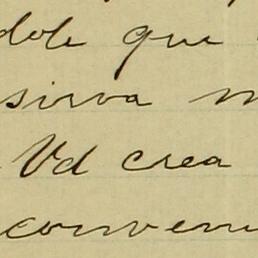 dole que
sirva
Vd crea
conveni